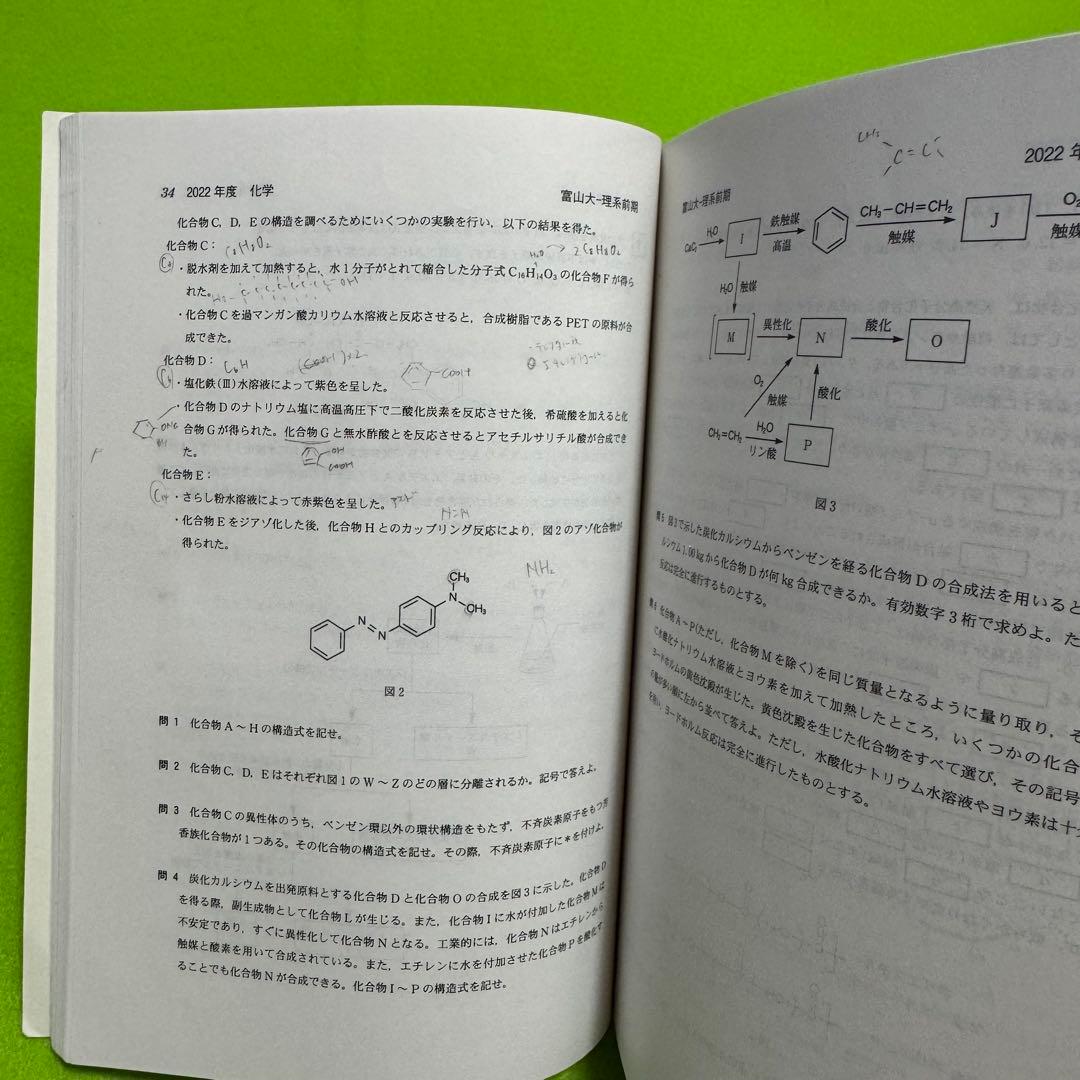 34 2022年度 化学
富山大-理系前期
化合物C，D，Eの構造を調べるためにいくつかの実験を行い，以下の結果を得た。
化合物C：
C₈H₈O₂
H₂O
2C₈H₈O₂
・脱水剤を加えて加熱すると，水1分子がとれて縮合した分子式C₁₆H₁₄O₃の化合物Fが得ら
れた。
・化合物Cを過マンガン酸カリウム水溶液と反応させると，合成樹脂であるPETの原料が合
成できた。
化合物D：
C₆H
(COOH)×2
COOH
・塩化鉄(Ⅲ)水溶液によって紫色を呈した。
・化合物Dのナトリウム塩に高温高圧下で二酸化炭素を反応させた後，希硫酸を加えると化
合物Gが得られた。化合物Gと無水酢酸とを反応させるとアセチルサリチル酸が合成でき
た。
OH
COOH
化合物E：
・さらし粉水溶液によって赤紫色を呈した。
・化合物Eをジアゾ化した後，化合物Hとのカップリング反応により，図2のアゾ化合物が
得られた。
NH₂
CH₃
N
CH₃
N=N
図2
問1 化合物A～Hの構造式を記せ。
問2 化合物C，D，Eはそれぞれ図1のW～Zのどの層に分離されるか。記号で答えよ。
問3 化合物Cの異性体のうち，ベンゼン環以外の環状構造をもたず，不斉炭素原子をもつ芳
香族化合物が1つある。その化合物の構造式を記せ。その際，不斉炭素原子に＊を付けよ。
問4 炭化カルシウムを出発原料とする化合物Dと化合物Oの合成を図3に示した。化合物D
を得る際，副生成物として化合物Lが生じる。また，化合物Iに水が付加した化合物Mは
不安定であり，すぐに異性化して化合物Nとなる。工業的には，化合物Nはエチレンから
触媒と酸素を用いて合成されている。また，エチレンに水を付加させた化合物Pを酸化す
ることでも化合物Nが合成できる。化合物I～Pの構造式を記せ。
CH₃
C=C
2022年
富山大-理系前期
CaC₂
H₂O
I
鉄触媒
高温
CH₃-CH=CH₂
触媒
J
O₂
触媒
H₂O
触媒
M
異性化
N
酸化
O
O₂
触媒
酸化
CH₂=CH₂
H₂O
リン酸
P
図3
問5 図3で示した炭化カルシウムからベンゼンを経る化合物Dの合成法を用いると
ルシウム1.00kgから化合物Dが何kg合成できるか。有効数字3桁で求めよ。た
反応は完全に進行するものとする。
問6 化合物A～P(ただし，化合物Mを除く)を同じ質量となるように量り取り，そ
に水酸化ナトリウム水溶液とヨウ素を加えて加熱したところ，いくつかの化合
ヨードホルムの黄色沈殿が生じた。黄色沈殿を生じた化合物をすべて選び，その記号
の量が多い順に左から並べて答えよ。ただし，水酸化ナトリウム水溶液やヨウ素は十分
を用い，ヨードホルム反応は完全に進行したものとする。